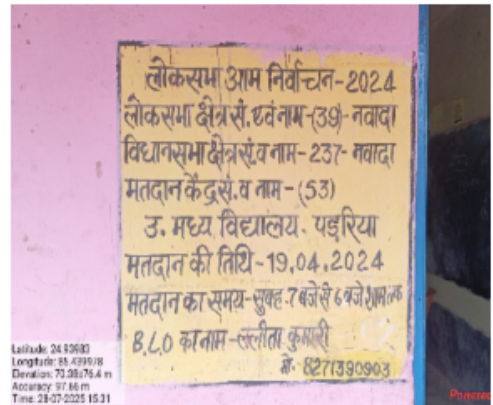 लोकसभा आम निर्वाचन-2024
लोकसभा क्षेत्र सं. एवं नाम-(39)-नवादा
विधानसभा क्षेत्र सं. व नाम-237-नवादा
मतदान केंद्र सं. व नाम-(53)
उ. मध्य विद्यालय. पड़रिया
मतदान की तिथि-19.04.2024
मतदान का समय-सुबह 7 बजे से 6 बजे शाम तक
B.L.O का नाम-ललीता कुमारी
मो. 8271390903
Latitude: 24.93983
Longitude: 85.439978
Elevation: 70.98±76.4 m
Accuracy: 97.66 m
Time: 28-07-2025 15:31
Powered